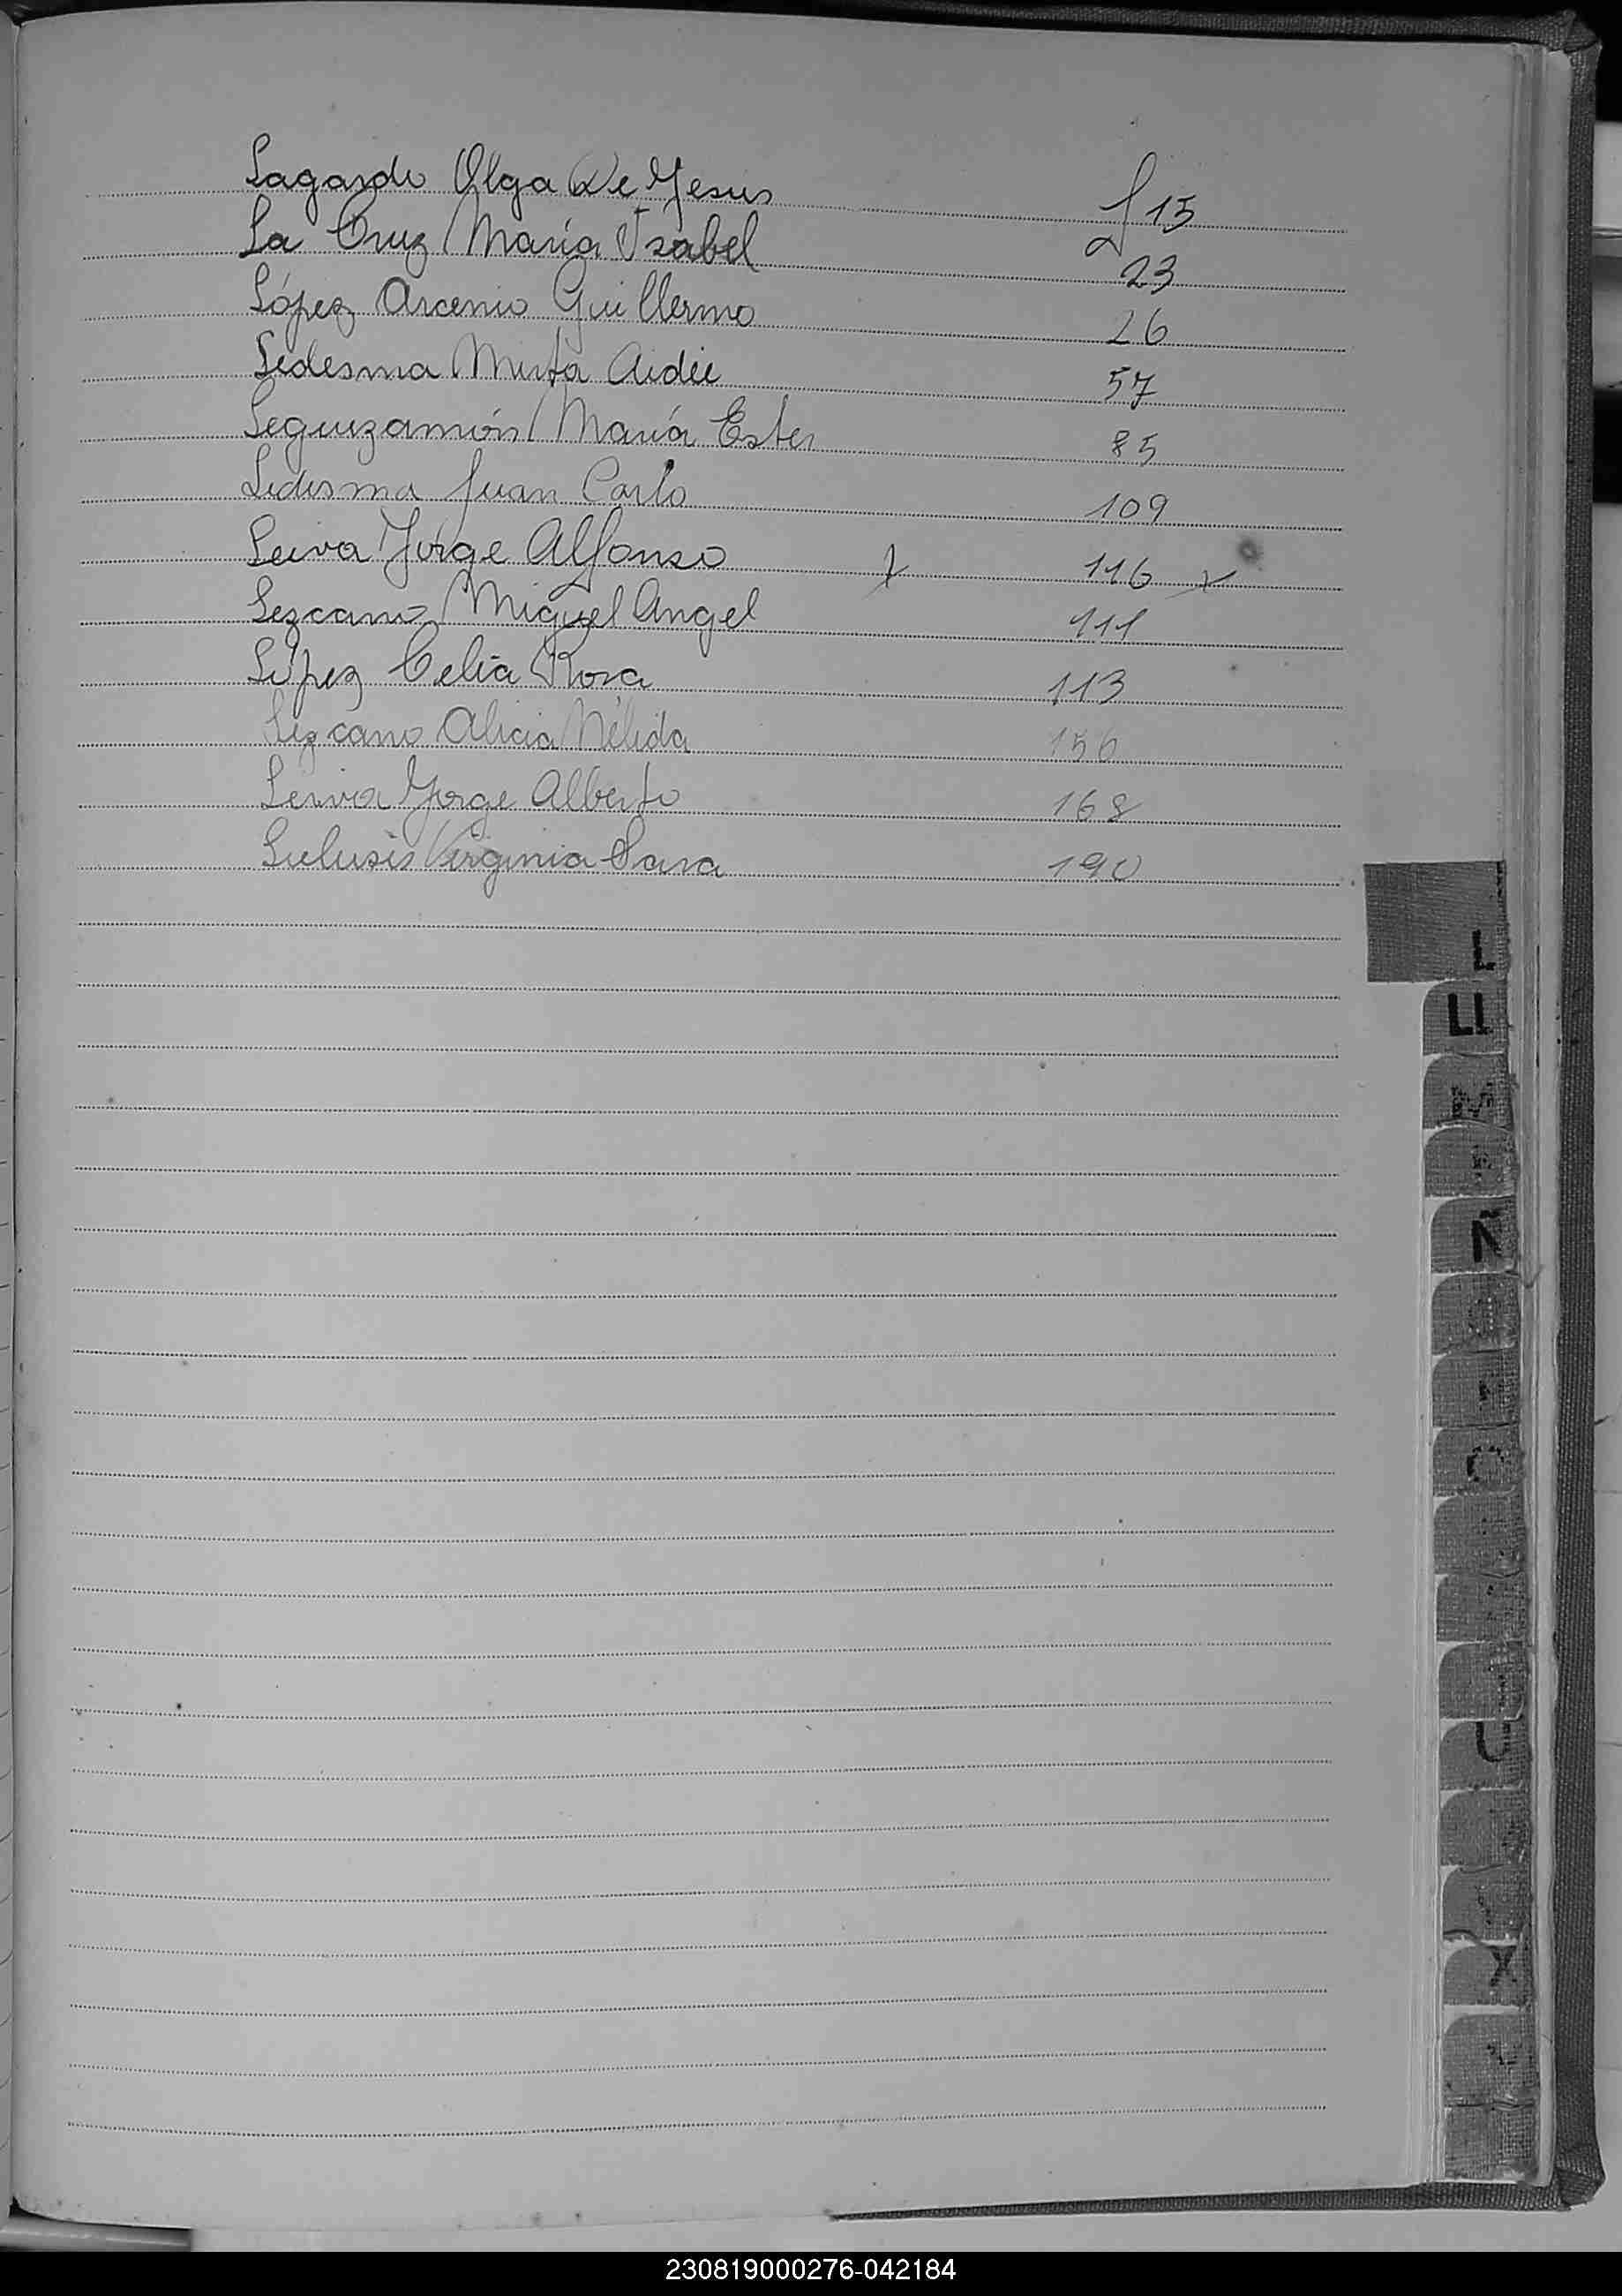 Lagarde Olga De Jesus f 15
La Cruz María Isabel 23
López Arcenio Guillermo 26
Ledesma Mirta Aidée 57
Leguizamón María Ester 85
Ledesma Juan Carlo 109
Leiva Jorge Alfonso 116
Lezcano Miguel Angel 111
López Celia Rosa 113
Lezcano Alicia Nélida 156
Leiva Jorge Alberto 168
Virginia Sara 190
L
LL
Ñ
U
X
230819000276-042184